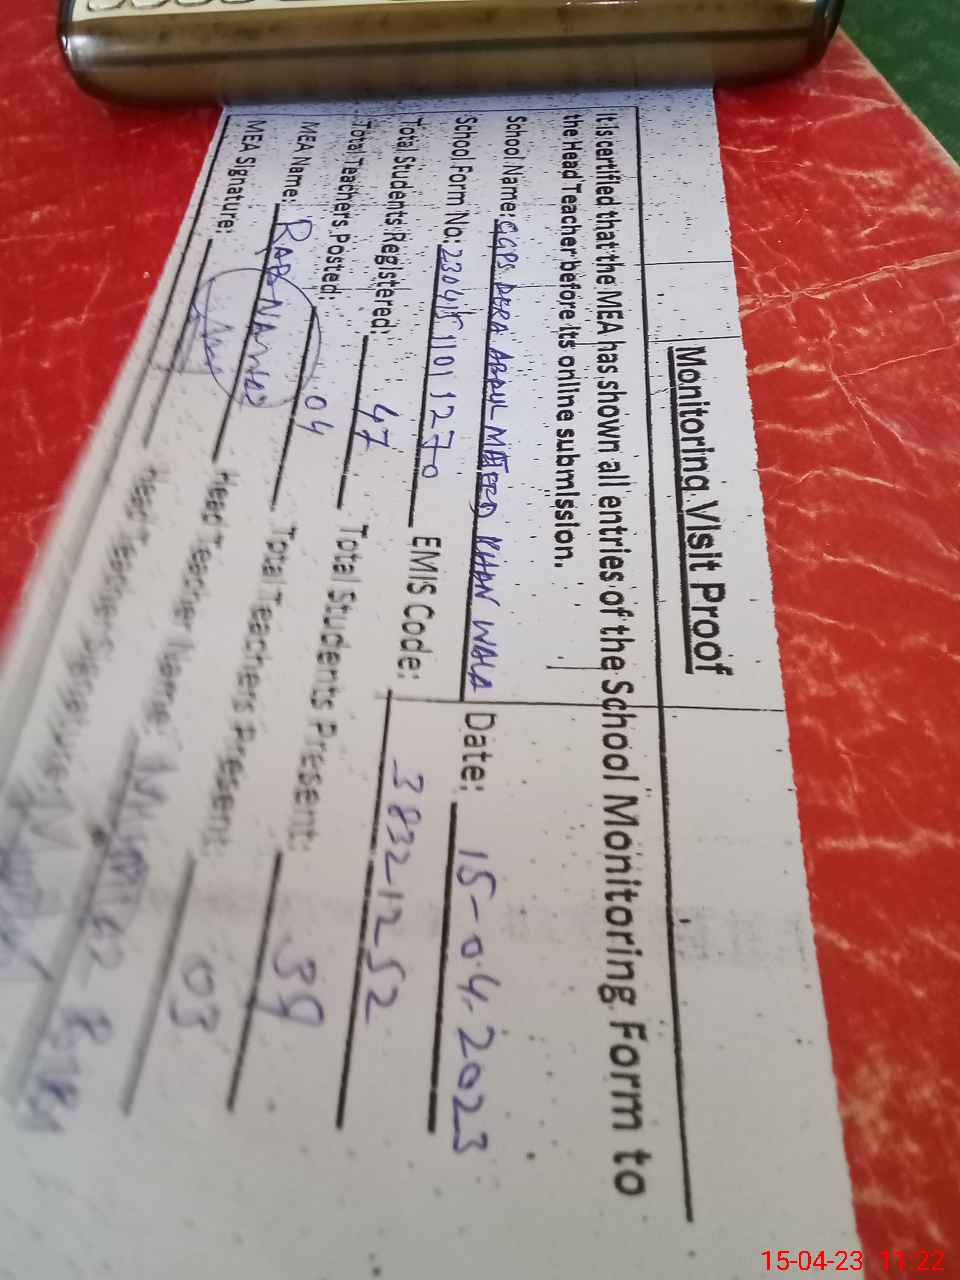 Monitoring Visit Proof
It is certified that the MEA has shown all entries of the School Monitoring Form to
the Head Teacher before its online submission.
School Name: GGPS DERA ABDUL MAJEED KHAN WALA Date: 15-04-2023
School Form No: EMIS Code: 38321252
Total Students Registered: 47 Total Students Present: 39
Total Teachers Posted: 04 Total Teachers Present: 03
MEA Name: RAB NAWAZ Head Teacher Name:
MEA Signature: Head Teacher Signature:
15-04-23 11:22